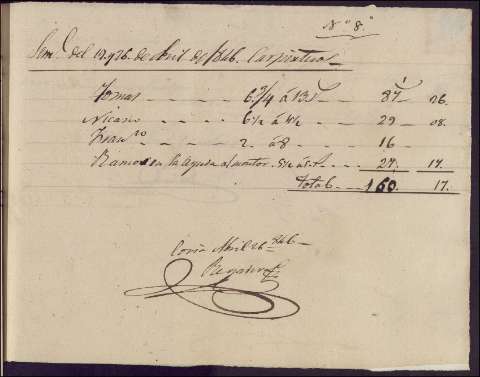 Nº 8º
Semª del 19 y 26 de Abril de 1846. Carpinteros
Tomas 6 3/4 á 13 87 26.
Nicacio 6 1/2 á 4 1/2 29 08.
Franco 2. á 8 16
Ramos en la ayuda al 5 1/2 á 5 27. 17.
Total 160. 17.
Coria Abril 26 846